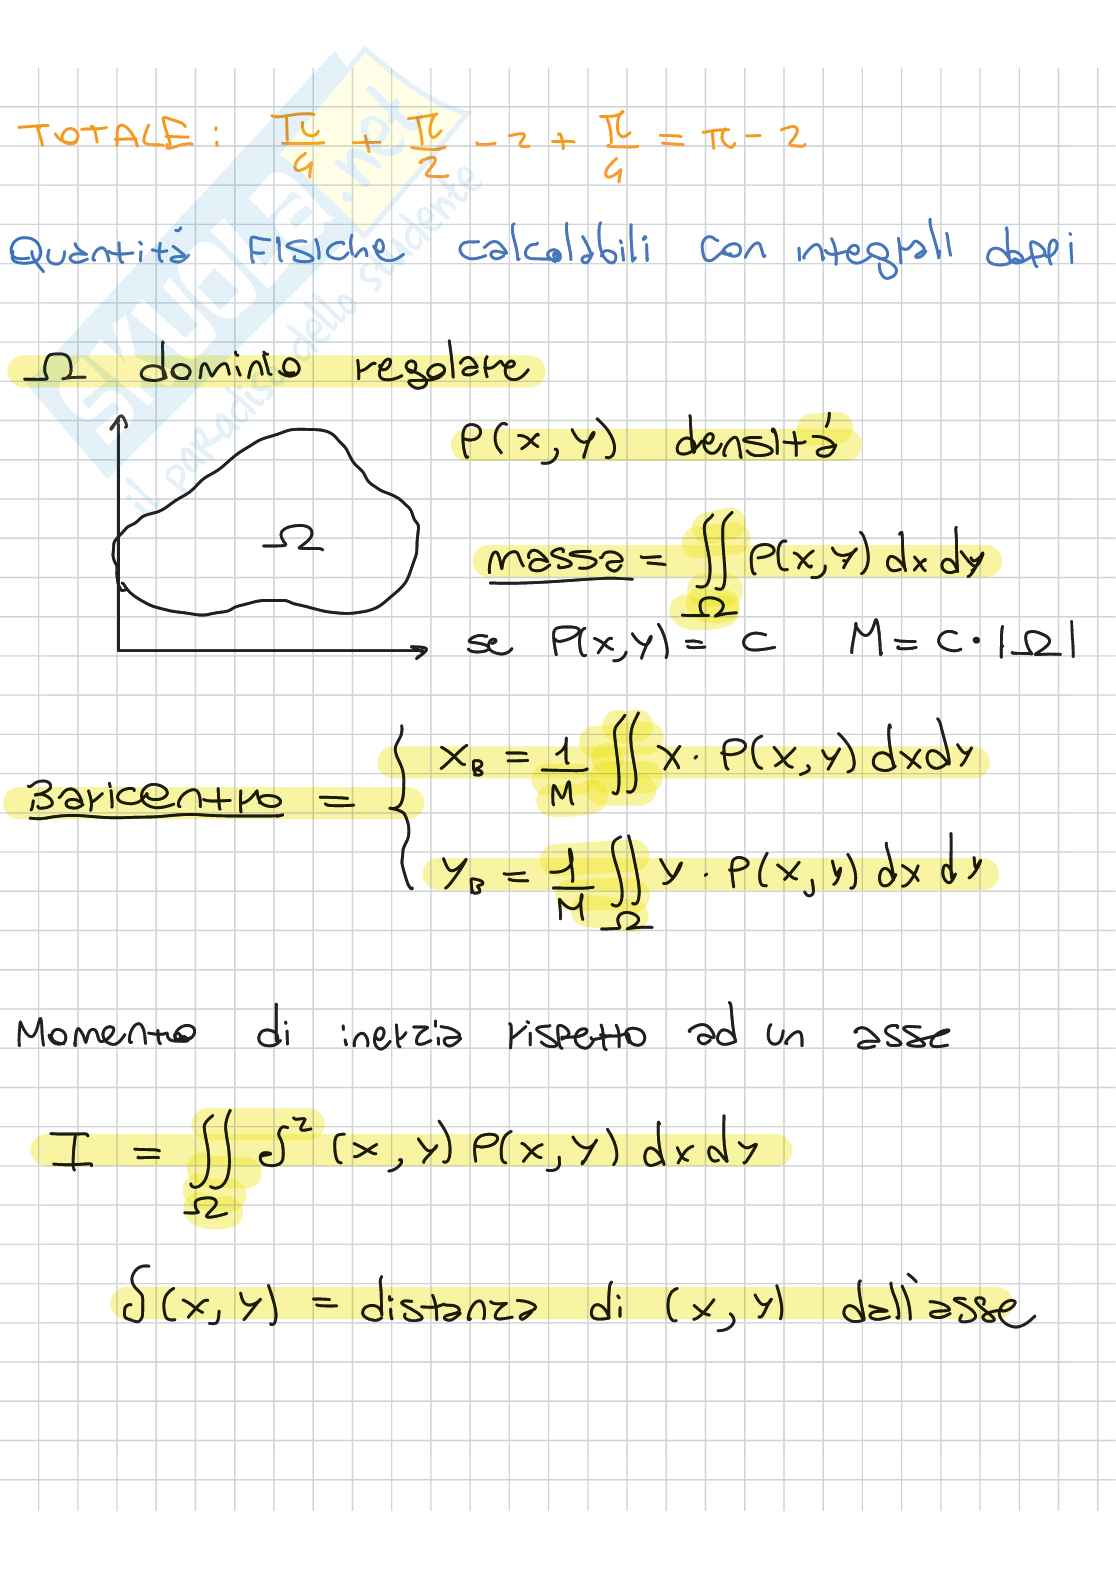 TOTALE: π/4 + π/2 - 2 + π/4 = π - 2
Quantità Fisiche calcolabili con integrali doppi
Ω dominio regolare
P(x,y) densità
Ω
massa = ∬_Ω P(x,y) dx dy
se P(x,y) = c M = c·|Ω|
Baricentro = {
x_B = 1/M ∬ x · P(x,y) dxdy
y_B = 1/M ∬_Ω y · P(x,y) dx dy
Momento di inerzia rispetto ad un asse
I = ∬_Ω δ² (x,y) P(x,y) dx dy
δ(x,y) = distanza di (x,y) dall'asse
SKUOLA.net
il paradiso dello studente